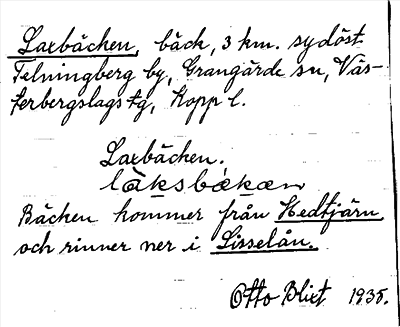 Laxbäcken, bäck, 3 km. sydöst
Telningberg by, Grangärde sn, Väs-
terbergslags tg, Kopp l.
Laxbäcken.
làksbækæn
Bäcken kommer från Hedtjärn
och rinner ner i Sisselån.
Otto Blixt 1935.